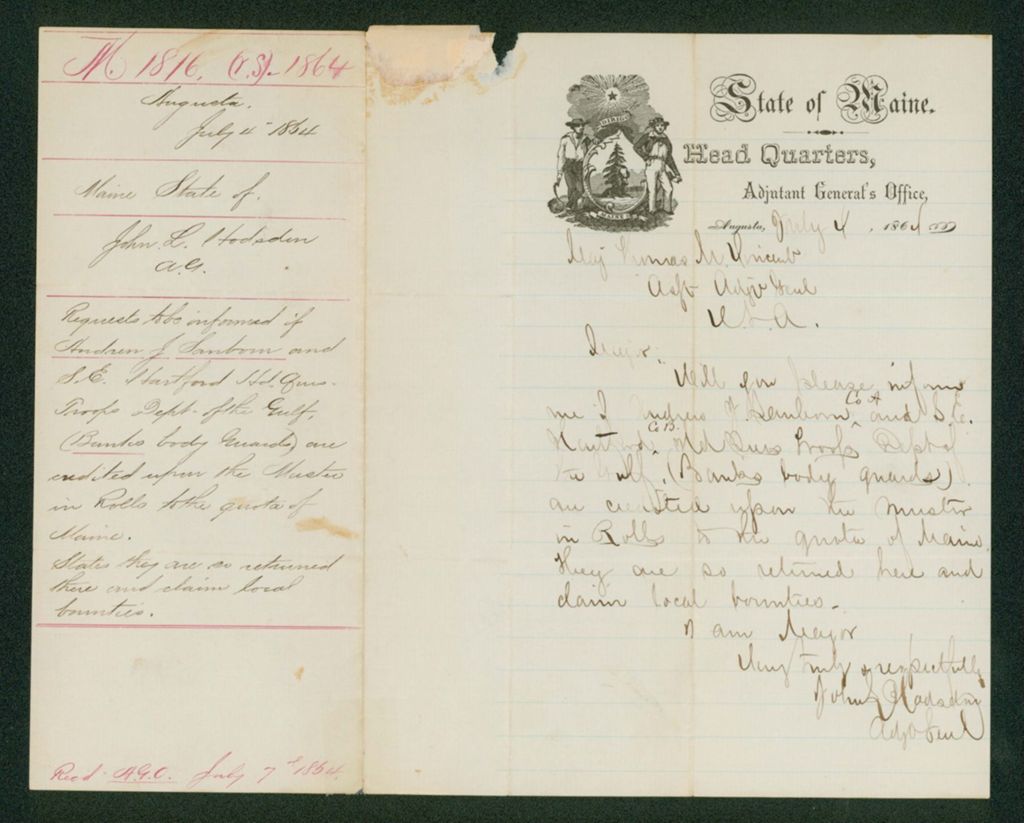 M. 1816. (V.S). 1864
Augusta.
July 4" 1864
Maine State of.
John L. Hodsdon
A.G.
Requests to be informed if
Andrew J. Sanborn and
S.E. Hartford Hd. Qurs.
Troops Dept. of the Gulf,
(Banks body Guards) are
credited upon the Muster
in Rolls to the quota of
Maine.
States they are so returned
there and claim local
bounties.
Recd. A.G.O. July 7" 1864.
DIRIGO
MAINE
State of Maine.
Head Quarters,
Adjutant General's Office,
Augusta, July 4, 1864
Maj Thomas M. Vincent
Asst Adjt Genl
U.S.A.
Major:
Will you please inform
me if Andrew J. Sanborn Co A and S.E.
Hartford, Co B. Hd Qurs Troops Dept of
the Gulf, (Banks body guards)
are credited upon the muster
in Rolls to the quota of Maine.
They are so returned here and
claim local bounties.
I am Major
Very truly & respectfully
John L Hodsdon
Adjt Genl